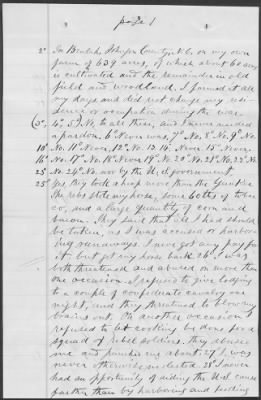 page 1
2d In Beulah, Johnson County, N.C. on my own
farm of 639 acres, of which about 60 acres
is cultivated and the remainder in old
field and woodland. I farmed it all
my days and did not change my resi-
dence or occupation during the war.
3d, 4th I. No, to all these, and I never needed
a pardon. 6th Never was, 7th No, 8th No, 9th No
10th No. 11th Never, 12th No. 13. No 14th Never. 15th Never.
16th No. 17th No. 18th Never 19th No. 20th No. 21st No. 22d No
23d No. 24th No. nor by the U.S. government.
25th Yes, they took a heap more than the
The rebs stole my horse, some 60 lbs of tobac-
co, and a large quantity of corn and
bacon. They said that all I had should
be taken, as I was accused of harbor-
ing runaways. I never got any pay for
it but got my horse back. 26th I was
both threatened and abused on more than
one occasion. I refused to give lodging
to a couple of Confederate cavalry one
night, and they threatened to blow my
brains out. On another occasion I
refused to let cooking be done for a
squad of rebel soldiers. They abused
me and me about. 27th I was
never otherwise molested. 28th I never
had an opportunity of aiding the U.S. cause
farther than by harboring and feeding